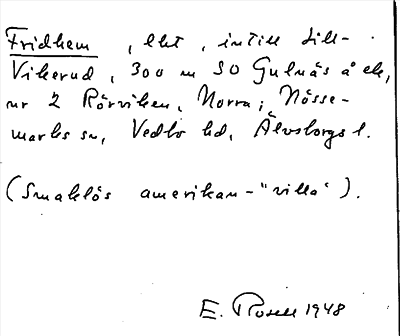 Fridhem, lht, intill Lill-
Vikerud, 300 m SO Gulnäs å ek,
nr 2 Rörviken, Norra; Nösse-
marks sn, Vedbo hd, Älvsborgs l.
(Smaklös amerikan-"villa").
E. Rosell 1948